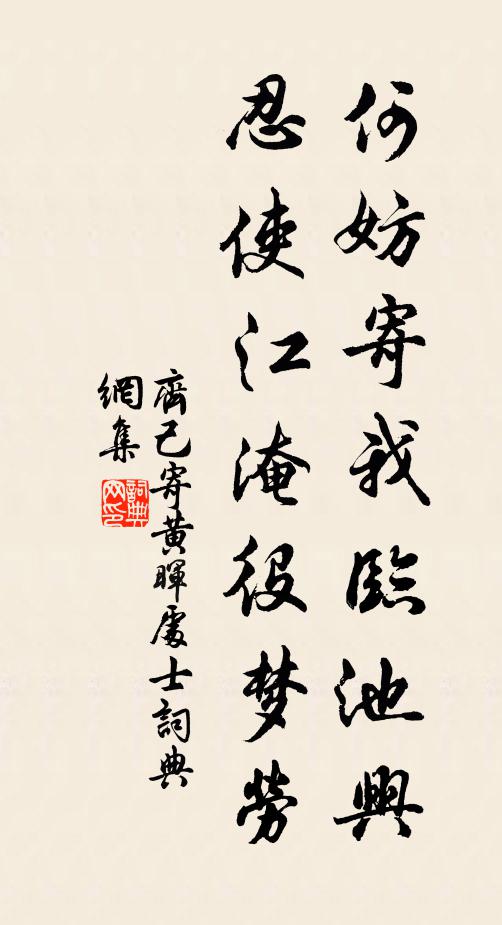 何妨寄我臨池興
忍使江淹役梦勞
齊己寄黄暉處士詞典
網集
詞典
网印